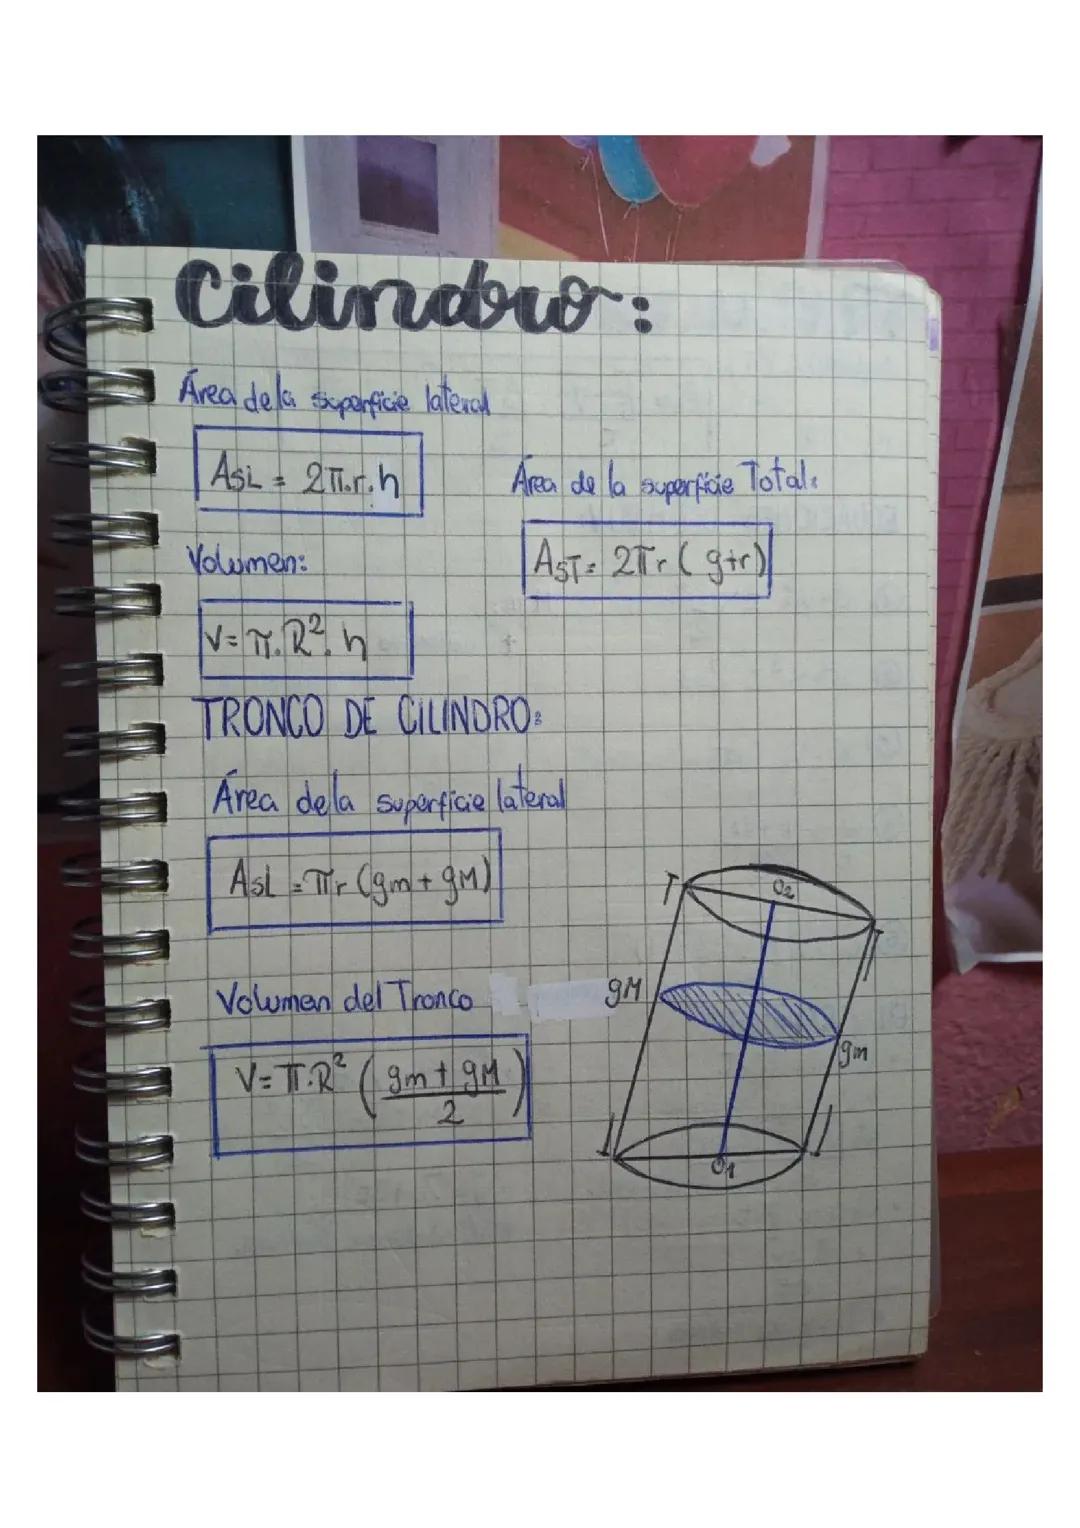 Cilindro:
Área de la superficie lateral
ASL = 2π.r.h
Área de la superficie Total:
AST = 2πr (g+r)
Volumen:
V = π.R². h
TRONCO DE CILINDRO:
Área de la superficie lateral
ASL = πr (gm + gM)
Volumen del Tronco
V = π.R² (gm + gM / 2)
O2
gM
gm
O1